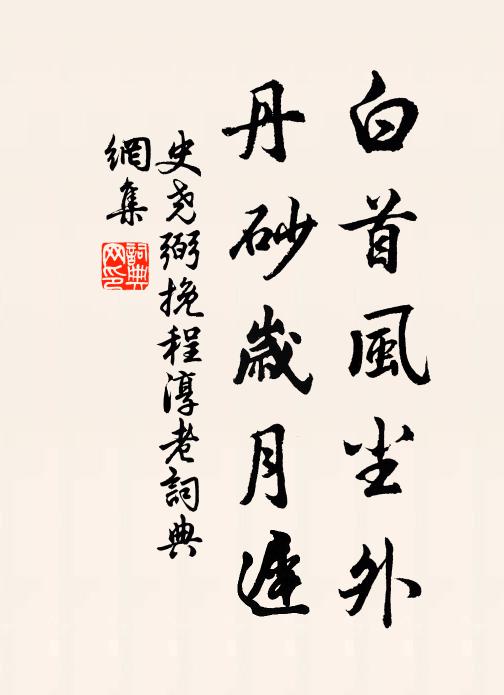 白首風尘外
丹砂歲月遲
史尧弼挽程淳老詞典
網集
詞典
网印